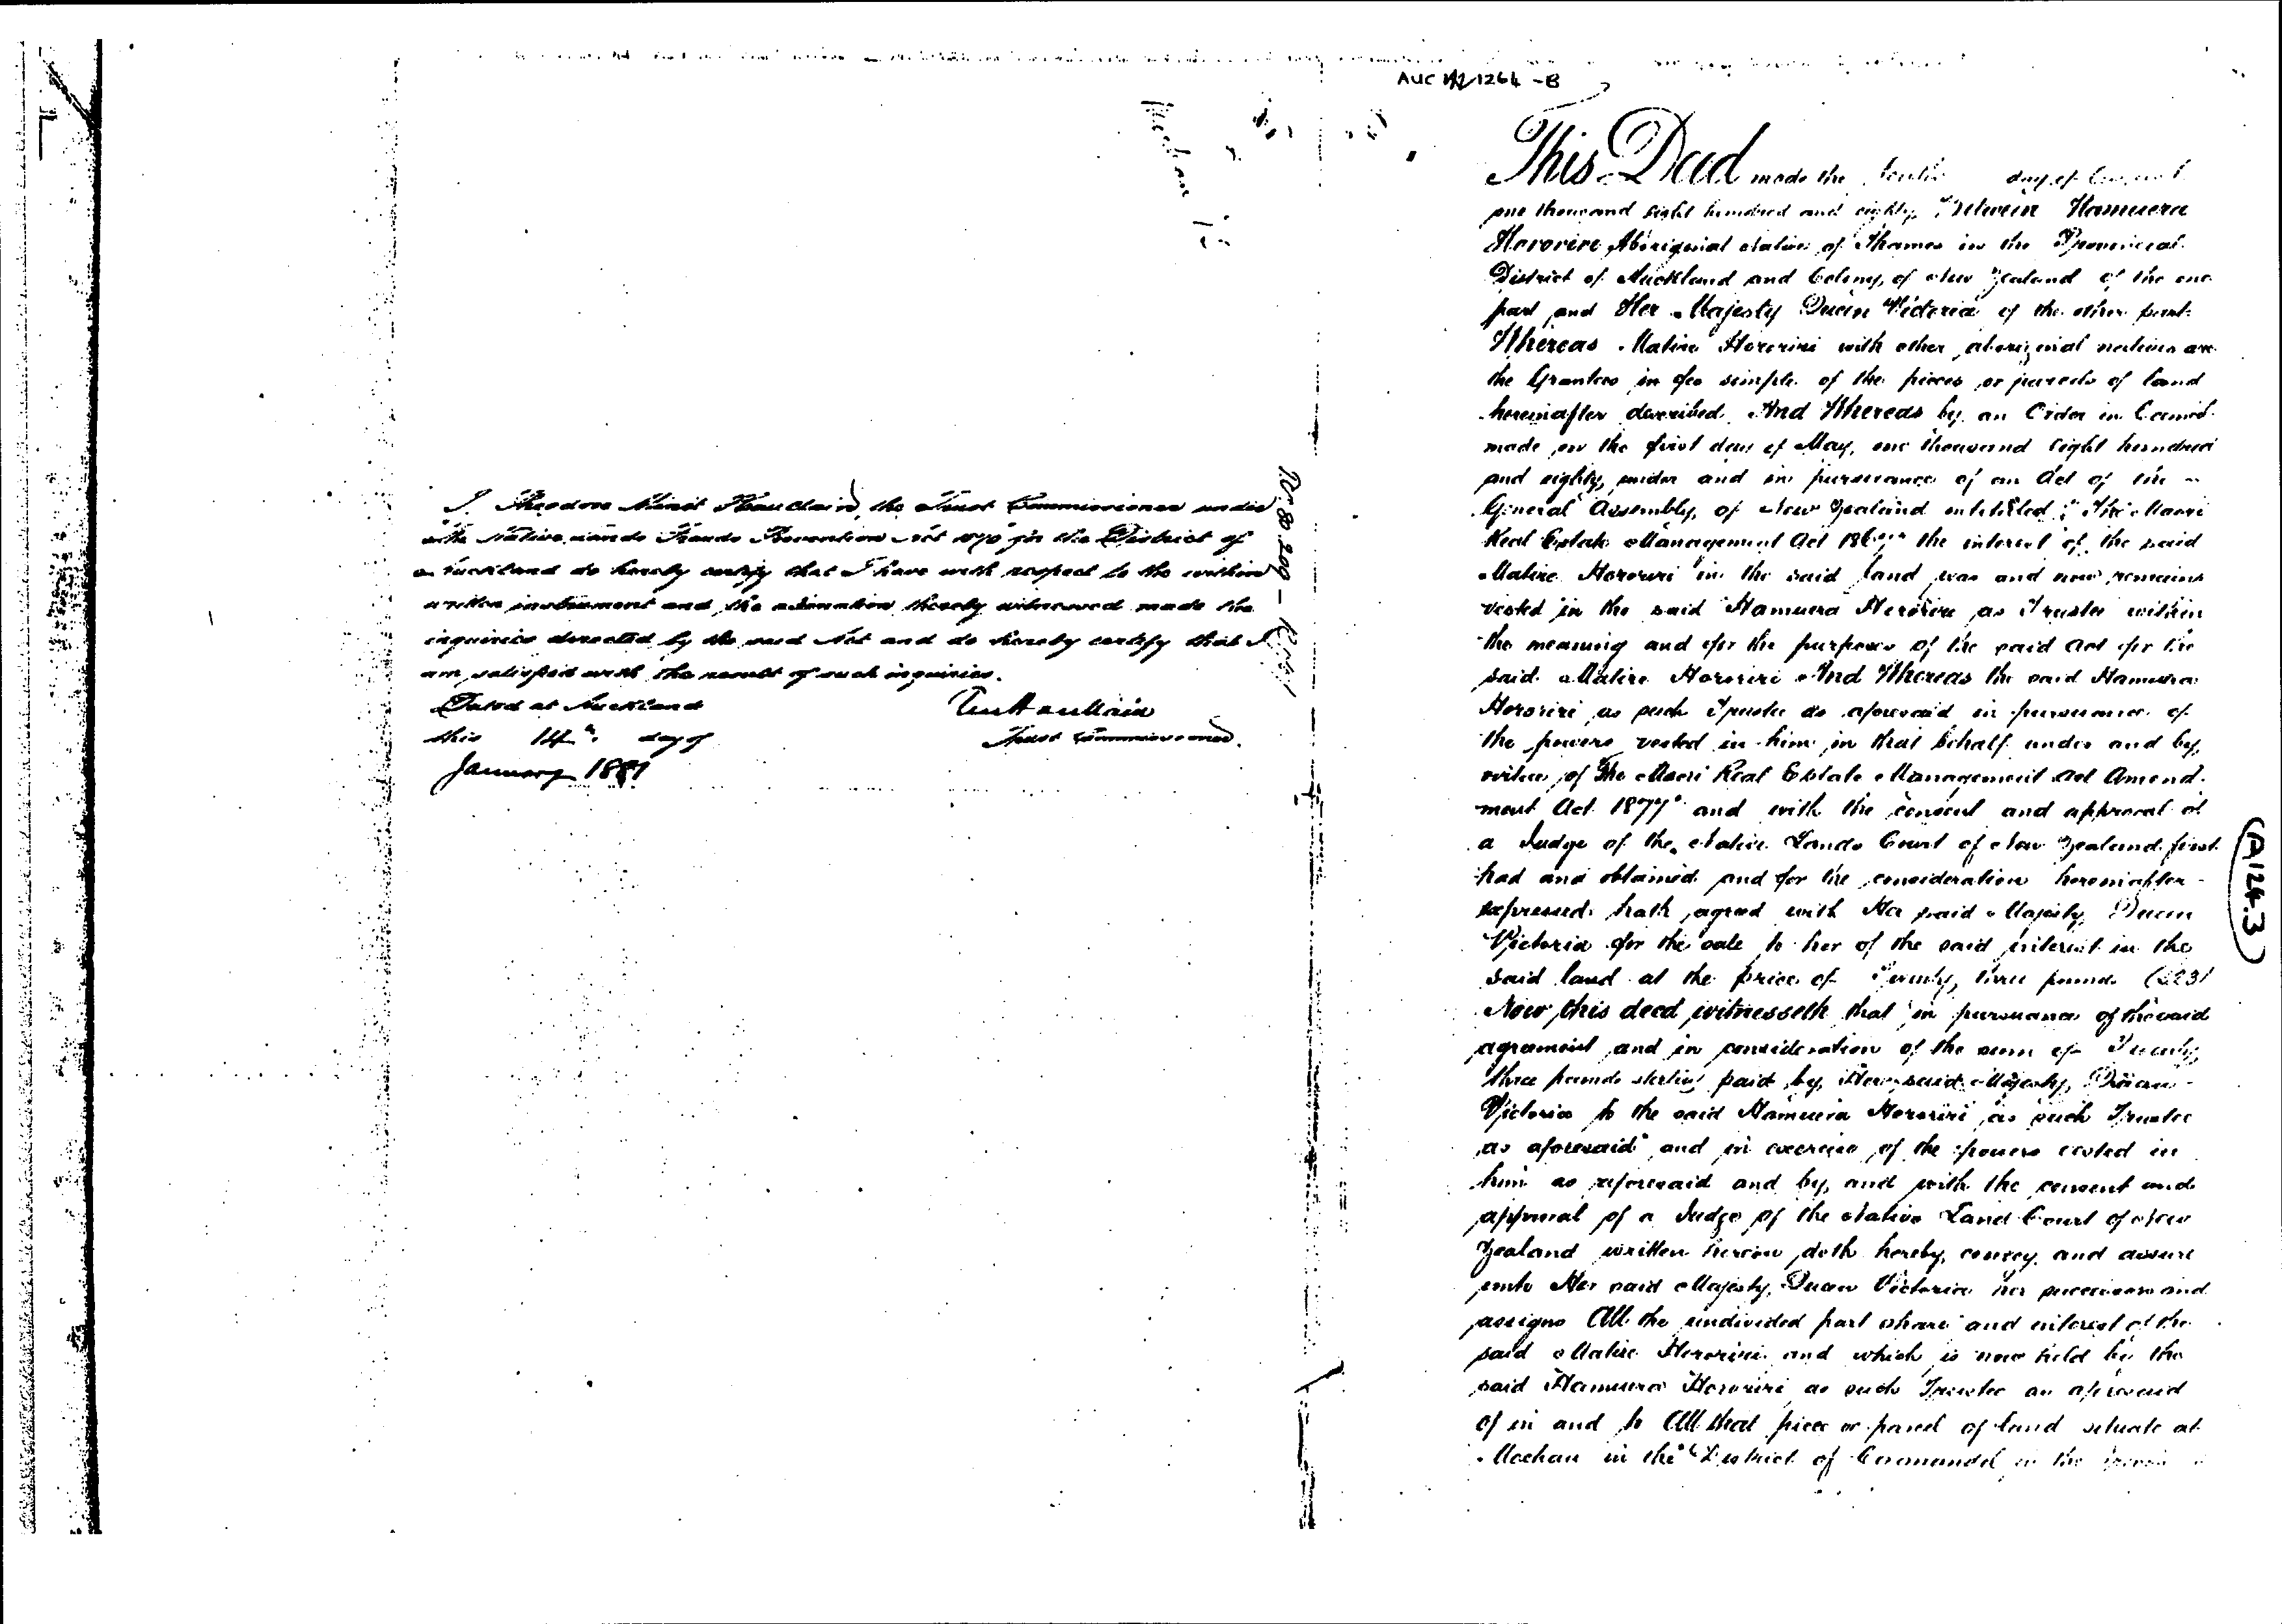 I Theodore Minet Haultain, the Trust Commissioner under
the Native Lands Frauds Prevention Act 1870 for the District of
Auckland do hereby certify that I have with respect to the within
written instrument and the alienation thereby witnessed made the
inquiries directed by the said Act and do hereby certify that I
am satisfied with the result of such inquiries.
Dated at Auckland
this 14th day of
January 1881
T M Haultain
Trust Commissioner.
AUC 1264 - B
This Deed made the tenth day of August
one thousand eight hundred and eighty Between Hamuera
Hororirie Aboriginal Native of Thames in the Provincial
District of Auckland and Colony of New Zealand of the one
part and Her Majesty Queen Victoria of the other part
Whereas Matire Hororirie with other aboriginal natives are
the Grantees in fee simple of the pieces or parcels of land
hereinafter described And Whereas by an Order in Council
made on the first day of May, one thousand eight hundred
and eighty, under and in pursuance of an Act of the
General Assembly of New Zealand intituled "The Maori
Real Estate Management Act 1867" the interest of the said
Matire Hororiri in the said land was and now remains
vested in the said Hamuera Hororiri as Trustee within
the meaning and for the purposes of the said Act for the
said Matire Hororiri And Whereas the said Hamuera
Hororiri as such Trustee as aforesaid in pursuance of
the powers vested in him in that behalf under and by
virtue of The Maori Real Estate Management Act Amend-
ment Act 1877" and with the consent and approval of
a Judge of the Native Lands Court of New Zealand first
had and obtained and for the consideration hereinafter
expressed hath agreed with Her said Majesty Queen
Victoria for the sale to her of the said interest in the
said land at the price of Twenty three pounds (£23)
Now this deed witnesseth that in pursuance of the said
agreement and in consideration of the sum of Twenty
three pounds sterling paid by Her said Majesty Queen
Victoria to the said Hamuera Hororiri as such Trustee
as aforesaid and in exercise of the powers vested in
him as aforesaid and by and with the consent and
approval of a Judge of the Native Land Court of New
Zealand written hereon doth hereby convey and assure
unto Her said Majesty Queen Victoria her successors and
assigns All the undivided part share and interest of the
said Matire Hororiri and which is now held by the
said Hamuera Hororiri as such Trustee as aforesaid
of in and to All that piece or parcel of land situate at
Moehau in the District of Coromandel in the
A124.3